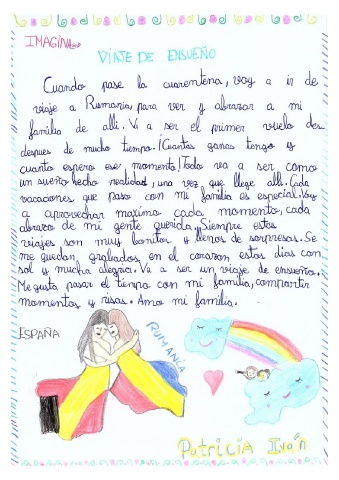 IMAGINA...
VIAJE DE ENSUEÑO
Cuando pase la cuarentena, voy a ir de
viaje a Rumania para ver y abrazar a mi
familia de allí. Va a ser el primer vuelo des
despues de mucho tiempo. ¡Cuantas ganas tengo y
cuanto espero ese momento! Todo va a ser como
un sueño hecho realidad, una vez que llege allí. Cada
vacaciones que paso con mi familia es especial. Voy
a aprovechar maximo cada momento, cada
abrazo de mi gente querida. Siempre estos
viajes son muy bonitos y llenos de sorpresas. Se
me quedan grabados en el corazon estos dias con
sol y mucha alegria. Va a ser un viaje de ensueño.
Me gusta pasar el tiempo con mi familia, compartir
momentos y risas. Amo mi familia.
ESPAÑA
RUMANIA
Patricia Iván